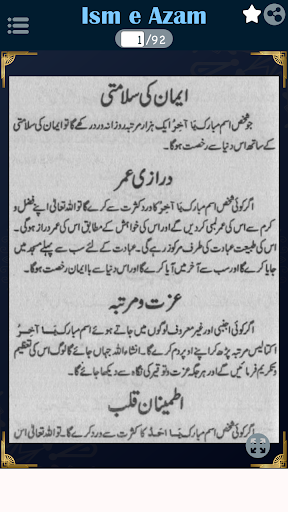 Ism e Azam
1/92
ایمان کی سلامتی
جو شخص اسم مبارک یَا آخِرُ ایک ہزار مرتبہ روزانہ ورد رکھے گا تو ایمان کی سلامتی
کے ساتھ اس دنیا سے رخصت ہوگا۔
درازی عمر
اگر کوئی شخص اسم مبارک یَا آخِرُ کا ورد کثرت سے کرے گا تو اللہ تعالیٰ اپنے فضل و
کرم سے اس کی عمر لمبی کردیں گے اور اس کی خواہش کے مطابق اس کی عمر دراز ہوگی۔ اس
کی طبیعت عبادت کی طرف مرکوز رہے گی۔ عبادت کے لئے سب سے پہلے مسجد میں
جایا کرے گا اور سب سے آخر میں آیا کرے گا اور اس دنیا سے با ایمان رخصت ہوگا۔
عزت و مرتبہ
اگر کوئی اجنبی اور غیر معارف لوگوں میں جاتے ہوئے اسم مبارک یَا آخِرُ
اکتالیس مرتبہ پڑھ کر اپنے اوپر دم کرے گا۔ انشاءاللہ جہاں جائے گا لوگ اس کی تعظیم
و تکریم فرمائیں گے اور ہر جگہ عزت و توقیر کی نگاہ سے دیکھا جائے گا۔
اطمینان قلب
اگر کوئی شخص اسم مبارک یَا اَحَدُ کا کثرت سے ورد کرے گا۔ تو اللہ تعالیٰ اس